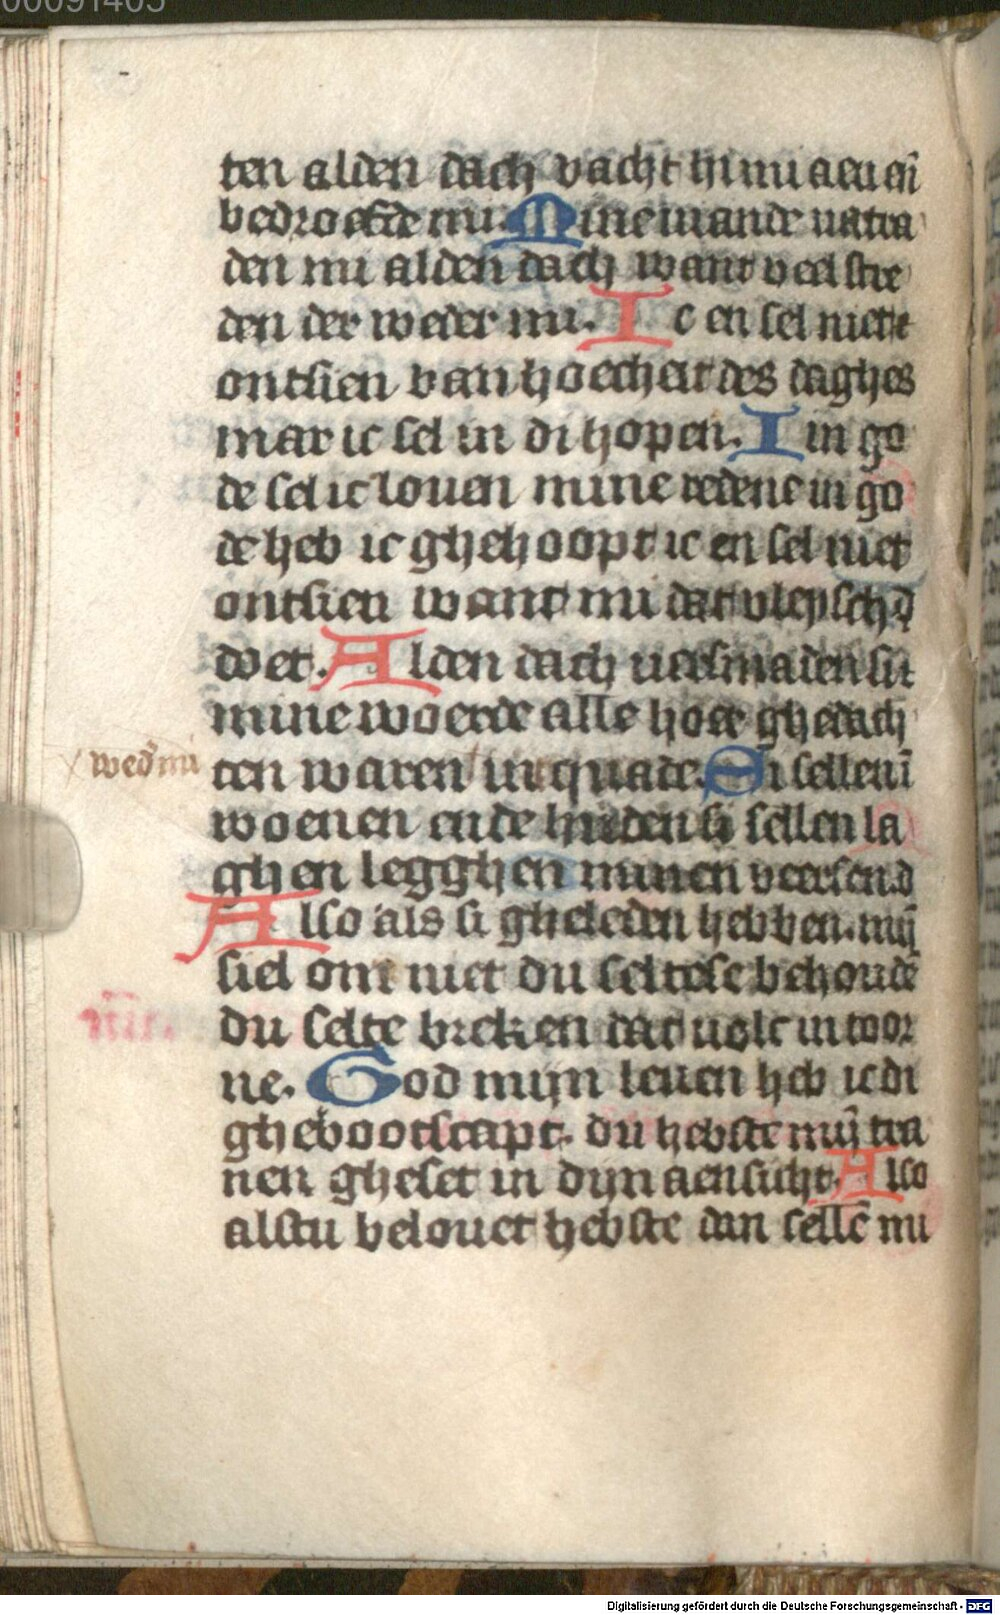 00091405
ten alden dach vacht hi mi aen en̄
bedroefde mi. Mine viande vertra
den mi alden dach want veel stre
den der weder mi. Ic en sel niet
ontsien van hoecheit des daghes
mar ic sel in di hopen. I in go
de sel ic louen mine redene in go
de heb ic ghehoopt ic en sel niet
ontsien want mi dat vleysch
doet. Alden dach uersmaden si
mine woerde alle hoer ghedach
wed̄ mi
ten waren in quade. Si sellen ī
woenen ende hueden si sellen la
ghen legghen minen veersen.
Also als si gheleden hebben. mij̄
siel om niet du seltese behoudē
du selte breken dat volc in toor
ne. God mijn leuen heb ic di
ghebootscapt. du hebste mij̄ tra
nen gheset in dijn aensicht. Also
alstu belouet hebste dan sellē mi
Digitalisierung gefördert durch die Deutsche Forschungsgemeinschaft - DFG